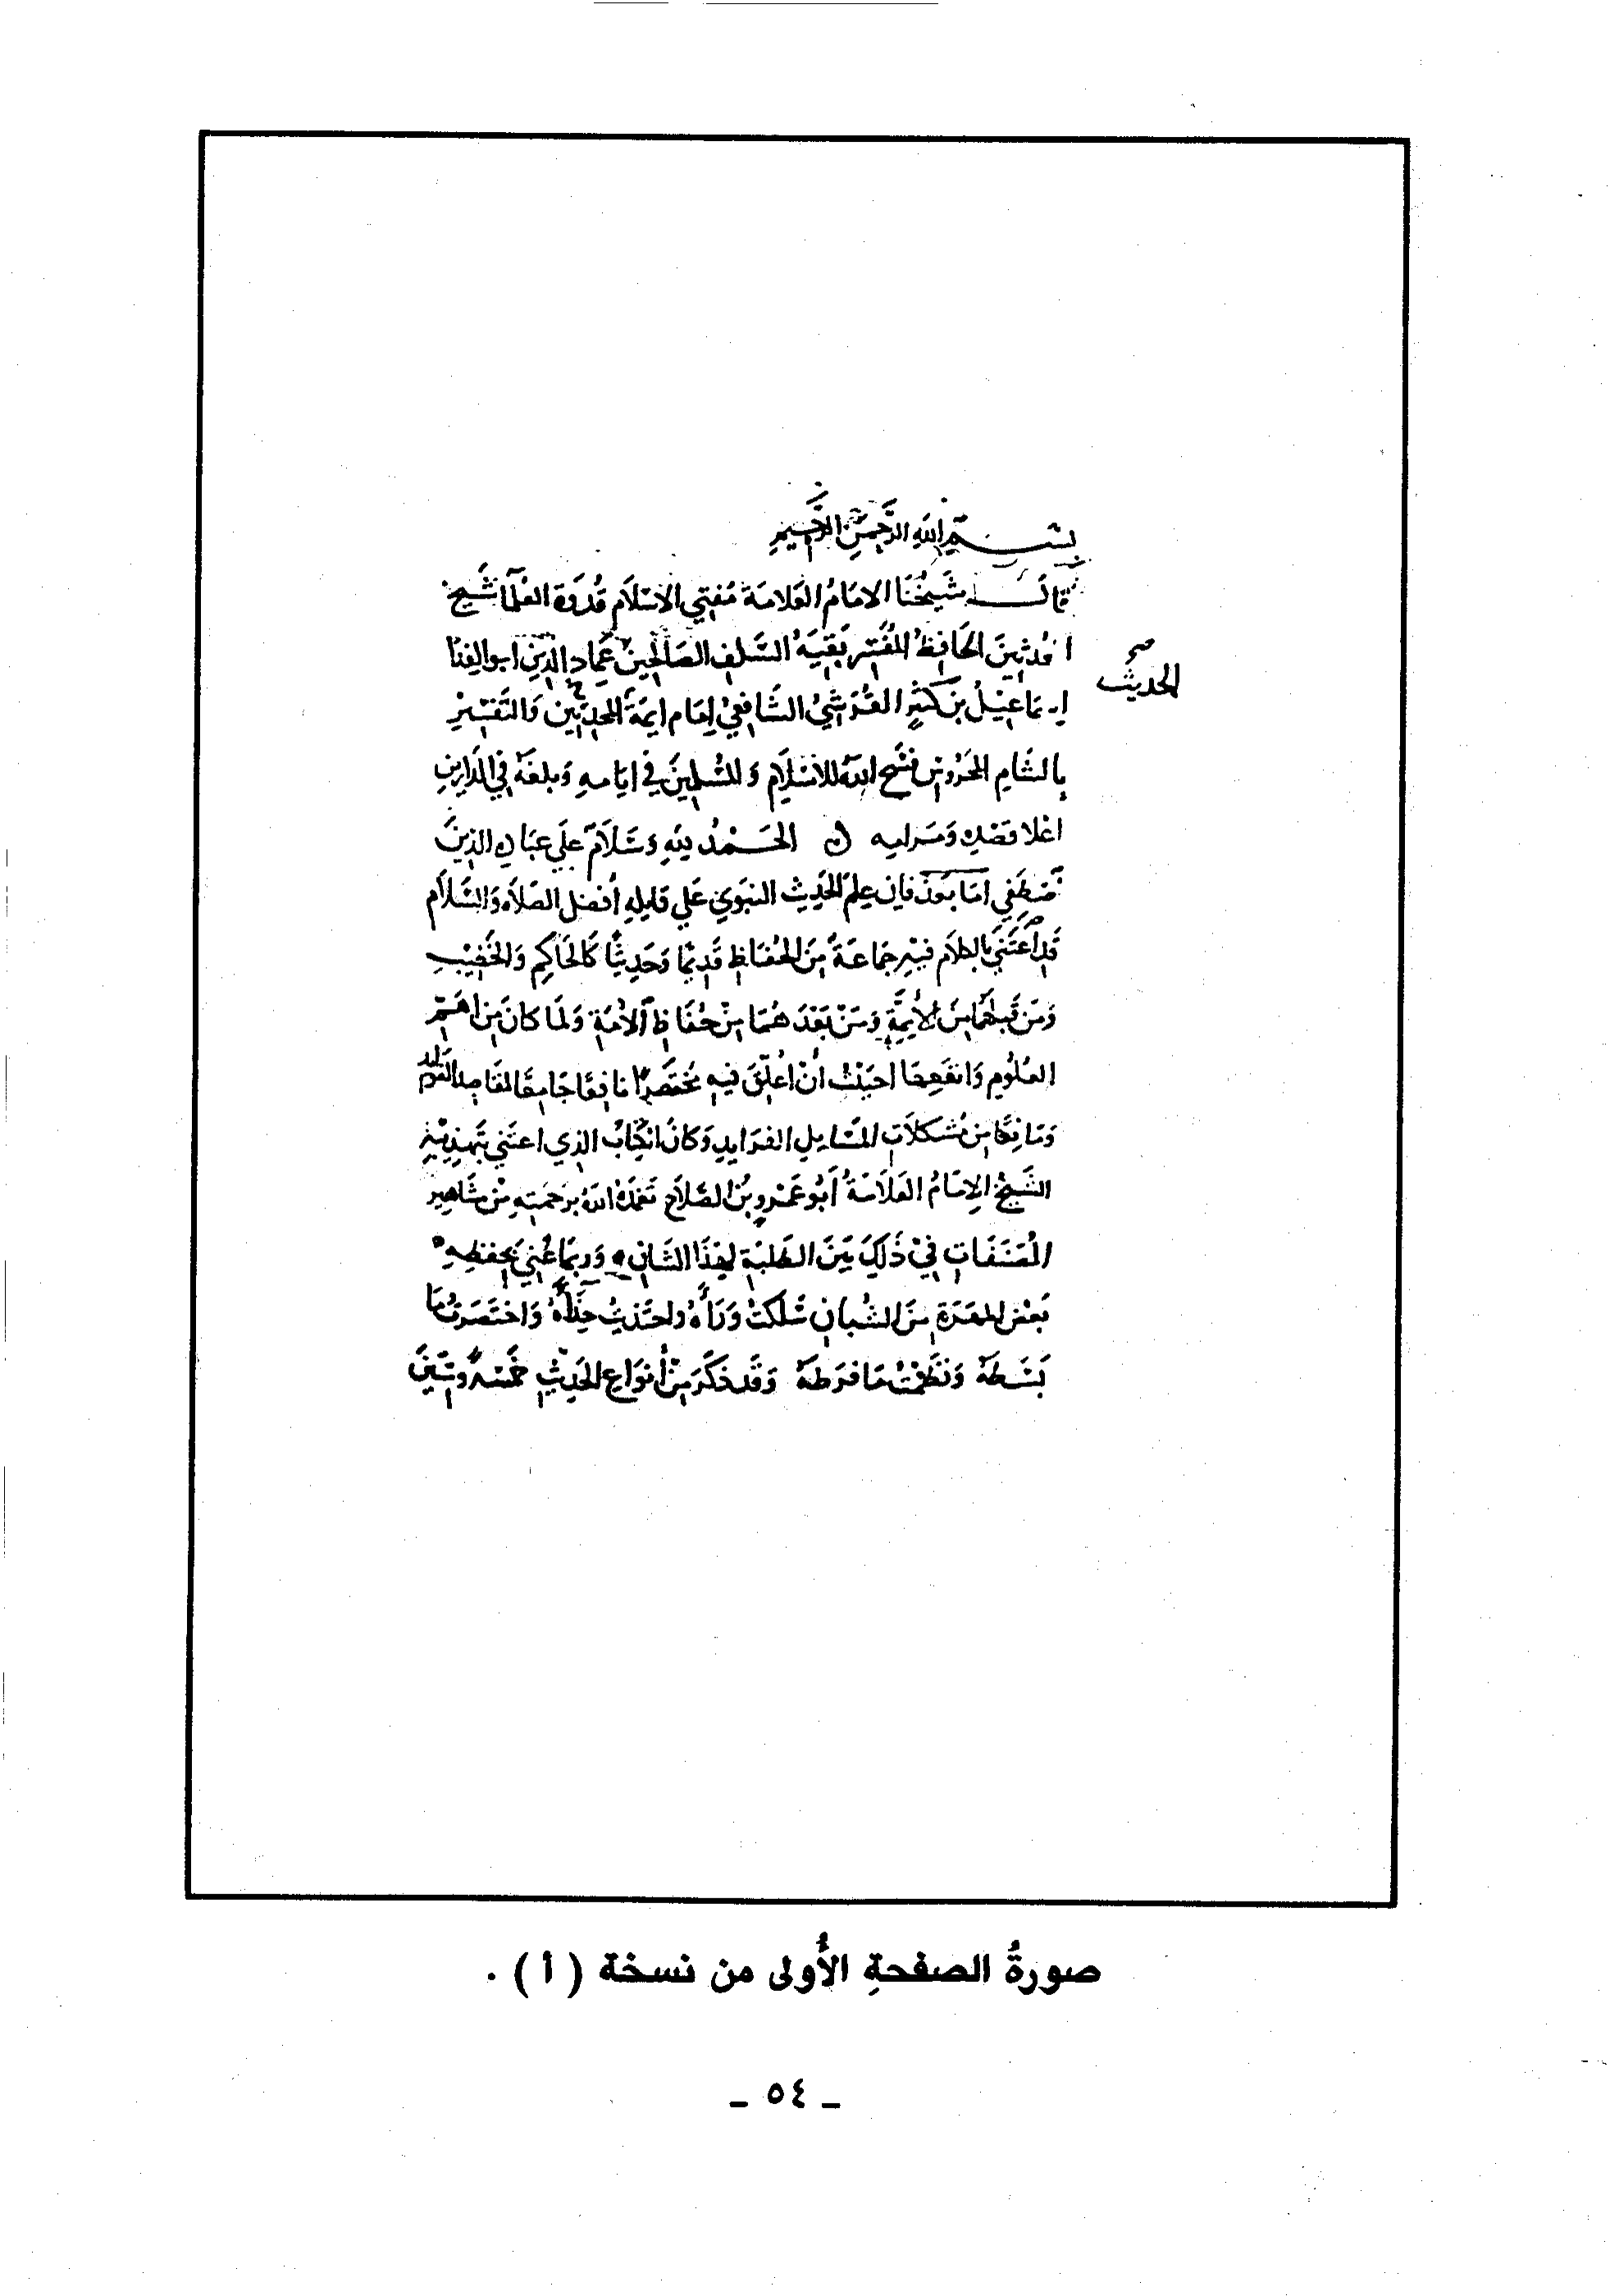 بسم الله الرحمن الرحيم
قال شيخنا الامام العلامة مفتي الاسلام قدوة العلما شيخ
المحدثين الحافظ المفسر بقية السلف الصالحين عماد الدين ابو الفدا
الحديث
اسماعيل بن كثير القرشي الشافعي امام ايمة المحدثين والتفسير
بالشام المحروس فسح الله للاسلام والمسلمين في ايامه وبلغه في الدارين
اعلا قصده ومرامه الحمد لله وسلام علي عباده الذين
اصطفي اما بعد فان علم الحديث النبوي علي قايله أفضل الصلاه والسلام
قد اعتني بالكلام فيه جماعة من الحفاظ قديما وحديثا كالحاكم والخطيب
ومن قبلهما من الأيمة ومن بعدهما من حفاظ الامة ولما كان من اهم
العلوم وانفعها احببت أن أعلق فيه مختصرا نافعا جامعا لمقاصد الفوايد
ومانعا من مشكلات المسايل الفرايد وكان الكتاب الذي اعتني بتهذيبه
الشيخ الامام العلامة أبو عمرو بن الصلاح تغمده الله برحمته من مشاهير
المصنفات في ذلك بين الطلبة لهذا الشان وربما عني بحفظه
بعض المهرة من الشبان سلكت وراه واحتذيت حذاه واختصرت ما
بسطه ونظمت ما فرطه وقد ذكر من أنواع الحديث خمسه وستين
صورةُ الصفحةِ الأُولى من نسخة ( أ ) .
ـ ٥٤ ـ